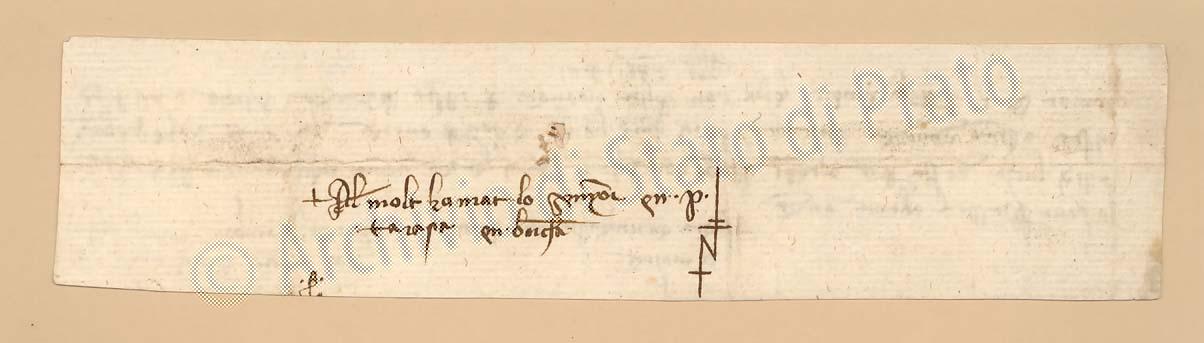 + Al molt honrat lo senyor en P.
tarasa en barchna
N
© Archivio di Stato di Prato